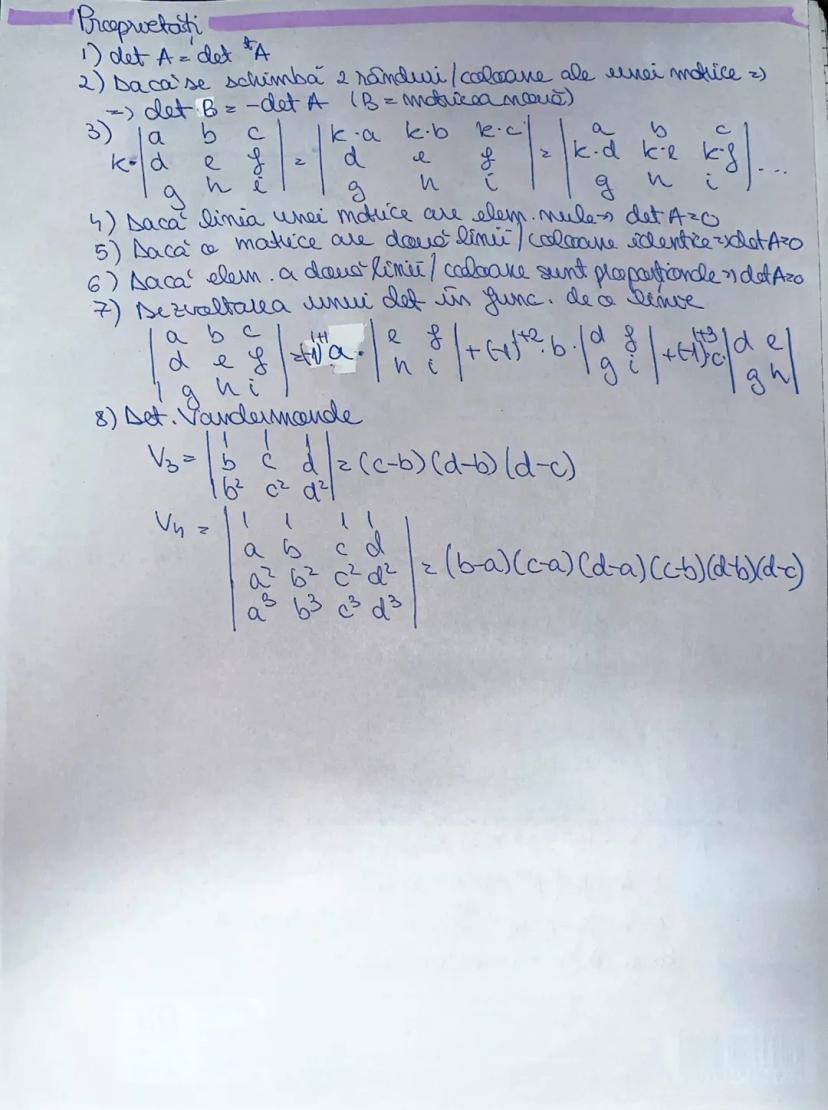 Proprietăți
1) det A = det ᵗA
2) Dacă se schimbă 2 rânduri/coloane ale unei matrice =>
=> det B = -det A (B = matricea nouă)
3) k·|a b c; d e f; g h i| = |k·a k·b k·c; d e f; g h i| = |a b c; k·d k·e k·f; g h i| ...
4) Dacă linia unei matrice are elem. nule => det A=0
5) Dacă o matrice are două linii/coloane identice => det A=0
6) Dacă elem. a două linii/coloane sunt proporționale => det A=0
7) Dezvoltarea unui det în func. de o linie
|a b c; d e f; g h i| = (-1)¹⁺¹ a·|e f; h i| + (-1)¹⁺²·b·|d f; g i| + (-1)¹⁺³·c|d e; g h|
8) Det. Vandermonde
V₃ = |1 1 1; b c d; b² c² d²| = (c-b)(d-b)(d-c)
V₄ = |1 1 1 1; a b c d; a² b² c² d²; a³ b³ c³ d³| = (b-a)(c-a)(d-a)(c-b)(d-b)(d-c)